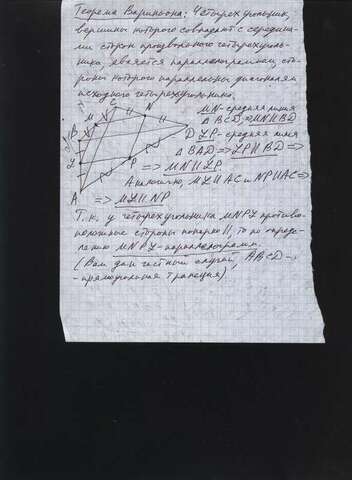 Теорема Вариньона: Четырехугольник,
вершины которого совпадают с середина-
ми сторон произвольного четырехуголь-
ника, является параллелограммом, сто-
роны которого параллельны диагоналям
исходного четырехугольника.
C N
M
B
D
L
P
A
MN - средняя линия
Δ BCD, ⇒ MN II BD
LP - средняя линия
Δ BAD ⇒ LP II BD ⇒
⇒ MN II LP.
Аналогично, ML II AC и NP II AC ⇒
⇒ ML II NP
Т.к. у четырехугольника MNPL противо-
положные стороны попарно II, то по опреде-
лению MNPL - параллелограмм.
(Вам дан частный случай, ABCD -
- прямоугольная трапеция).